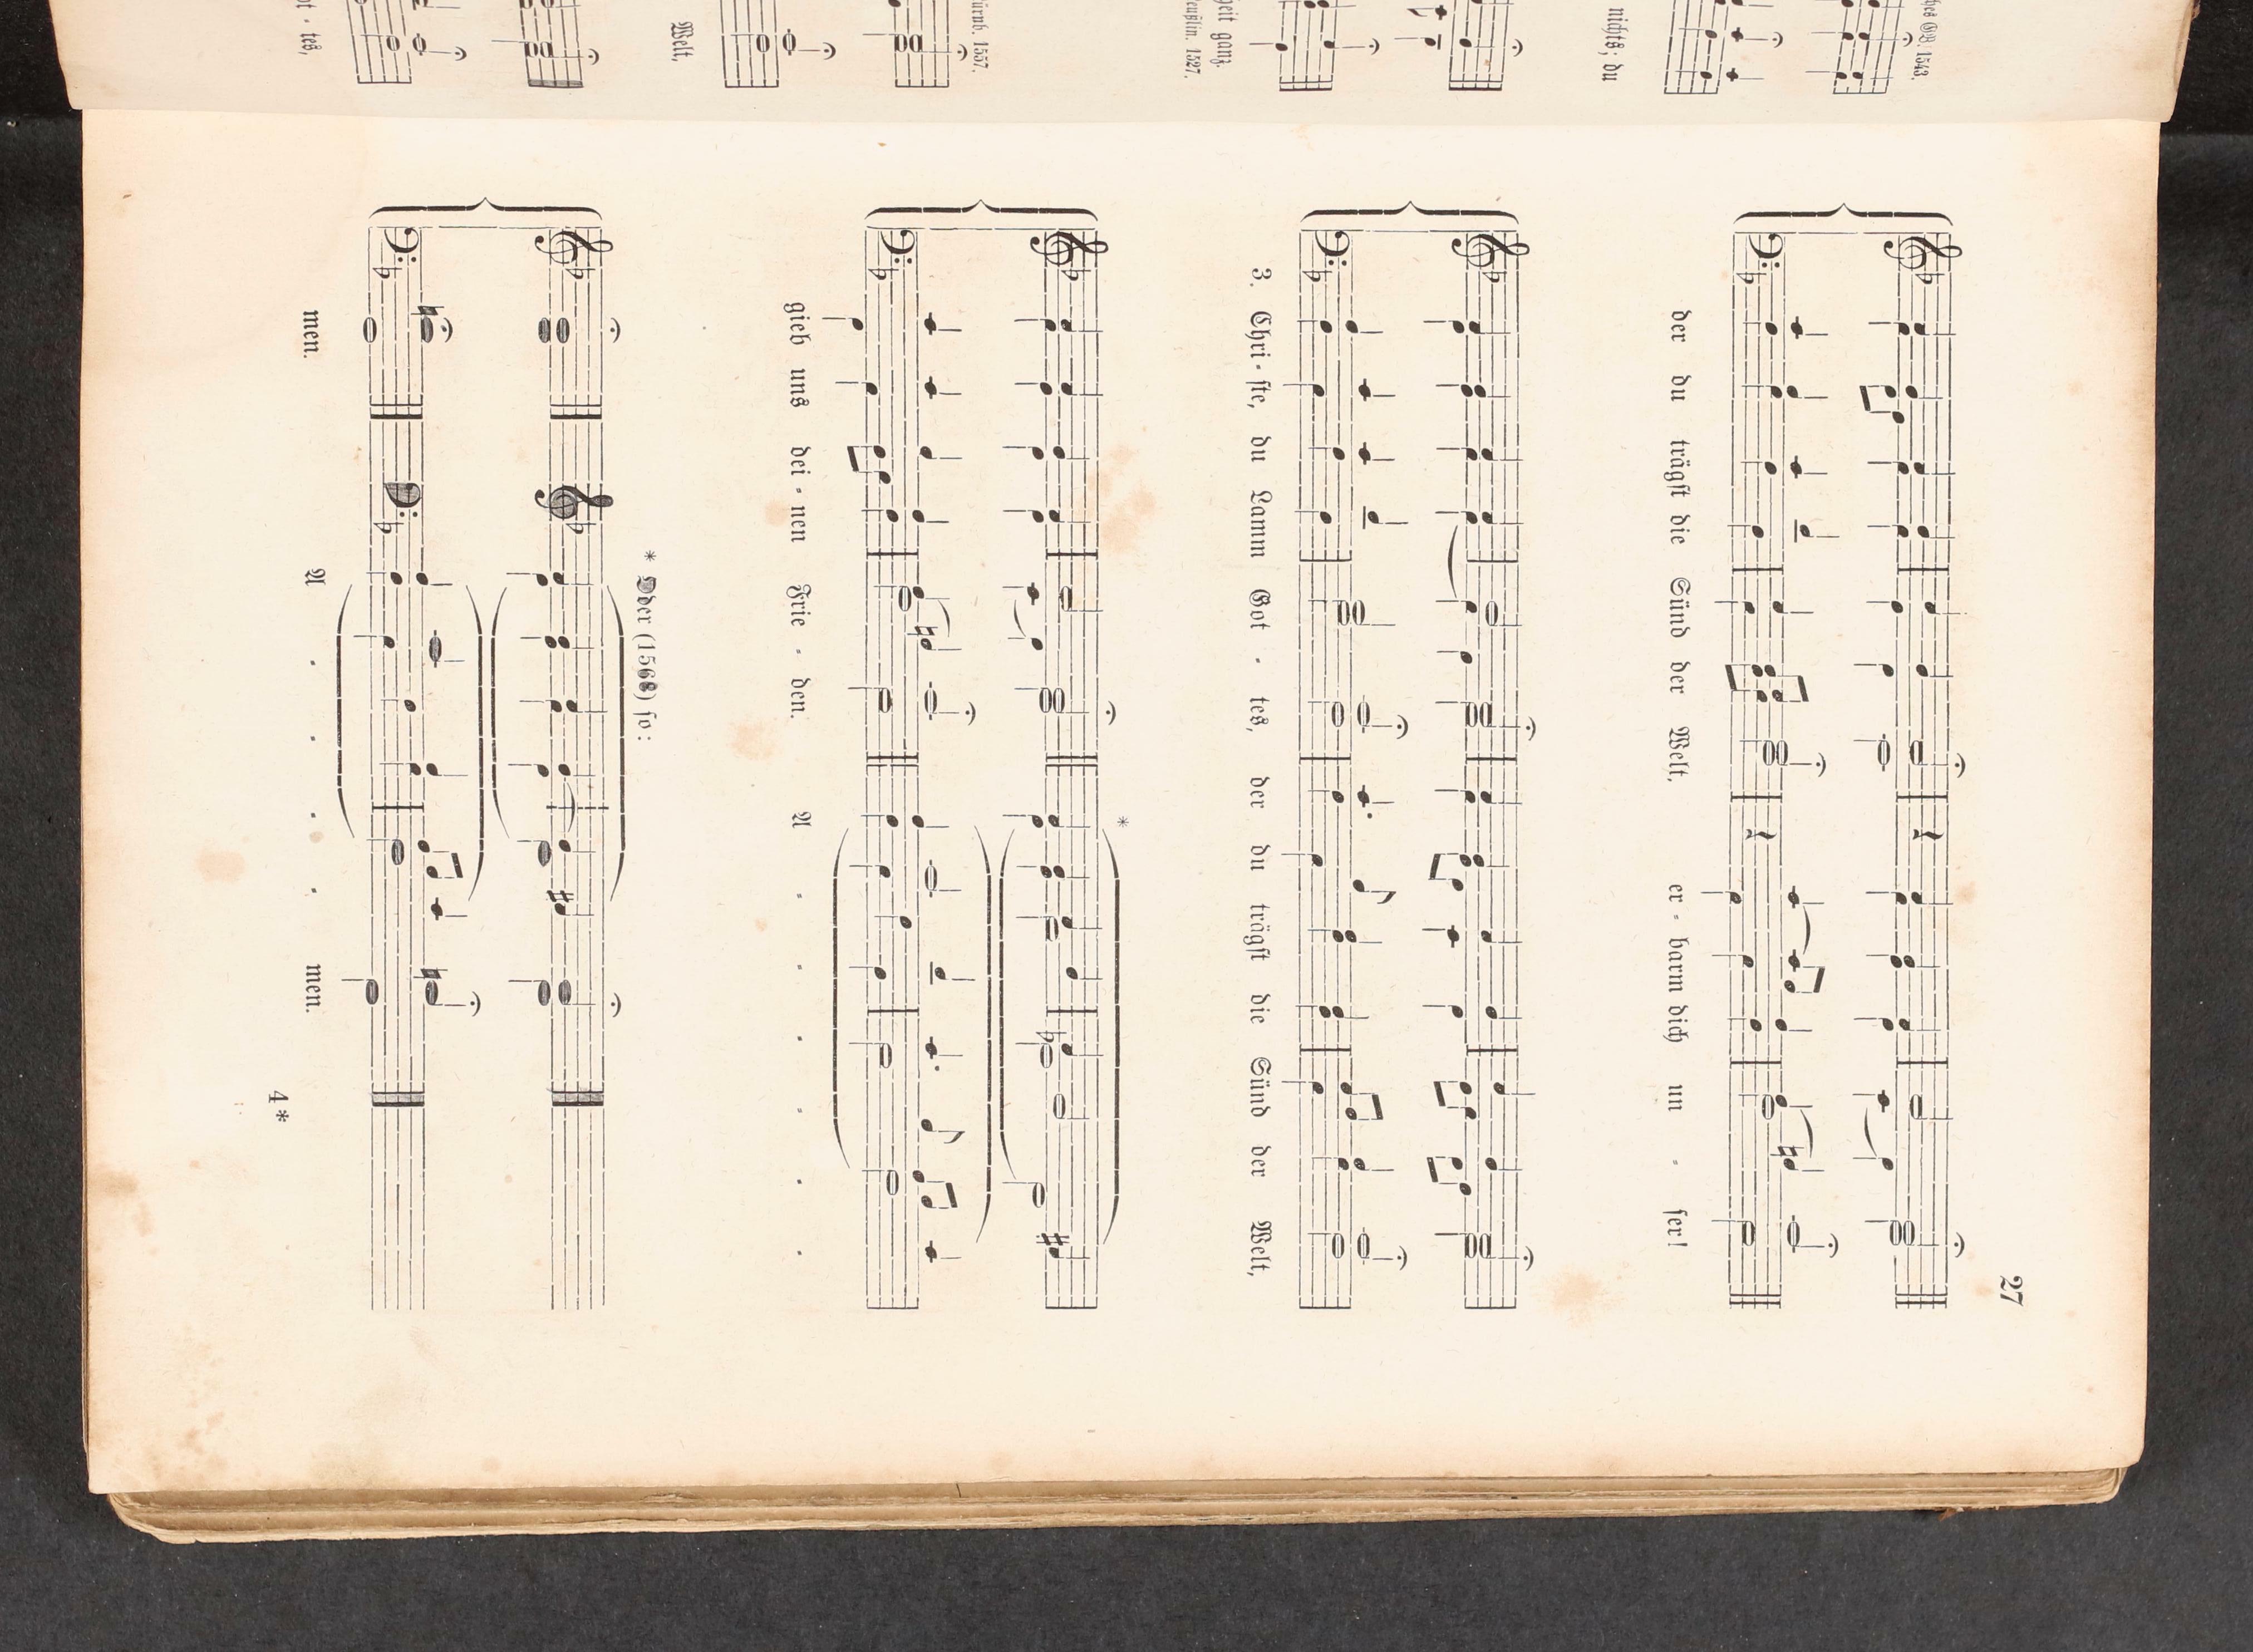 27
der du trägst die Sünd der Welt, er - barm dich un - ser!
3. Chri - ste, du Lamm Got - tes, der du trägst die Sünd der Welt,
*
gieb uns dei - nen Frie - den. A - - - - - -
* Oder (1568) so:
men. A - - - - men.
4*
hes GB. 1543.
nichts; du
eit ganz.
eußlin. 1527.
ürnb. 1557.
Welt,
ot - tes,